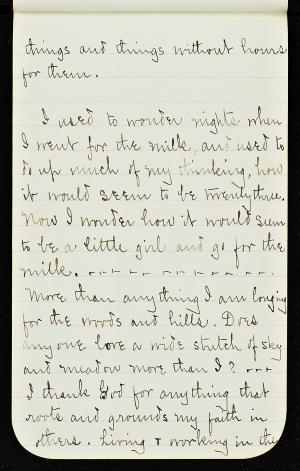 things and things without hours
for them.
I used to wonder nights when
I went for the milk, and used to
do up much of my thinking, how
it would seem to be twentythree.
Now I wonder how it would seem
to be a little girl and go for the
milk. -- -- -- -- -- -- --
More than anything I am longing
for the woods and hills. Does
any one love a wide stretch of sky
and meadow more than I? ---
I thank God for anything that
roots and grounds my faith in
others. Living + working in the